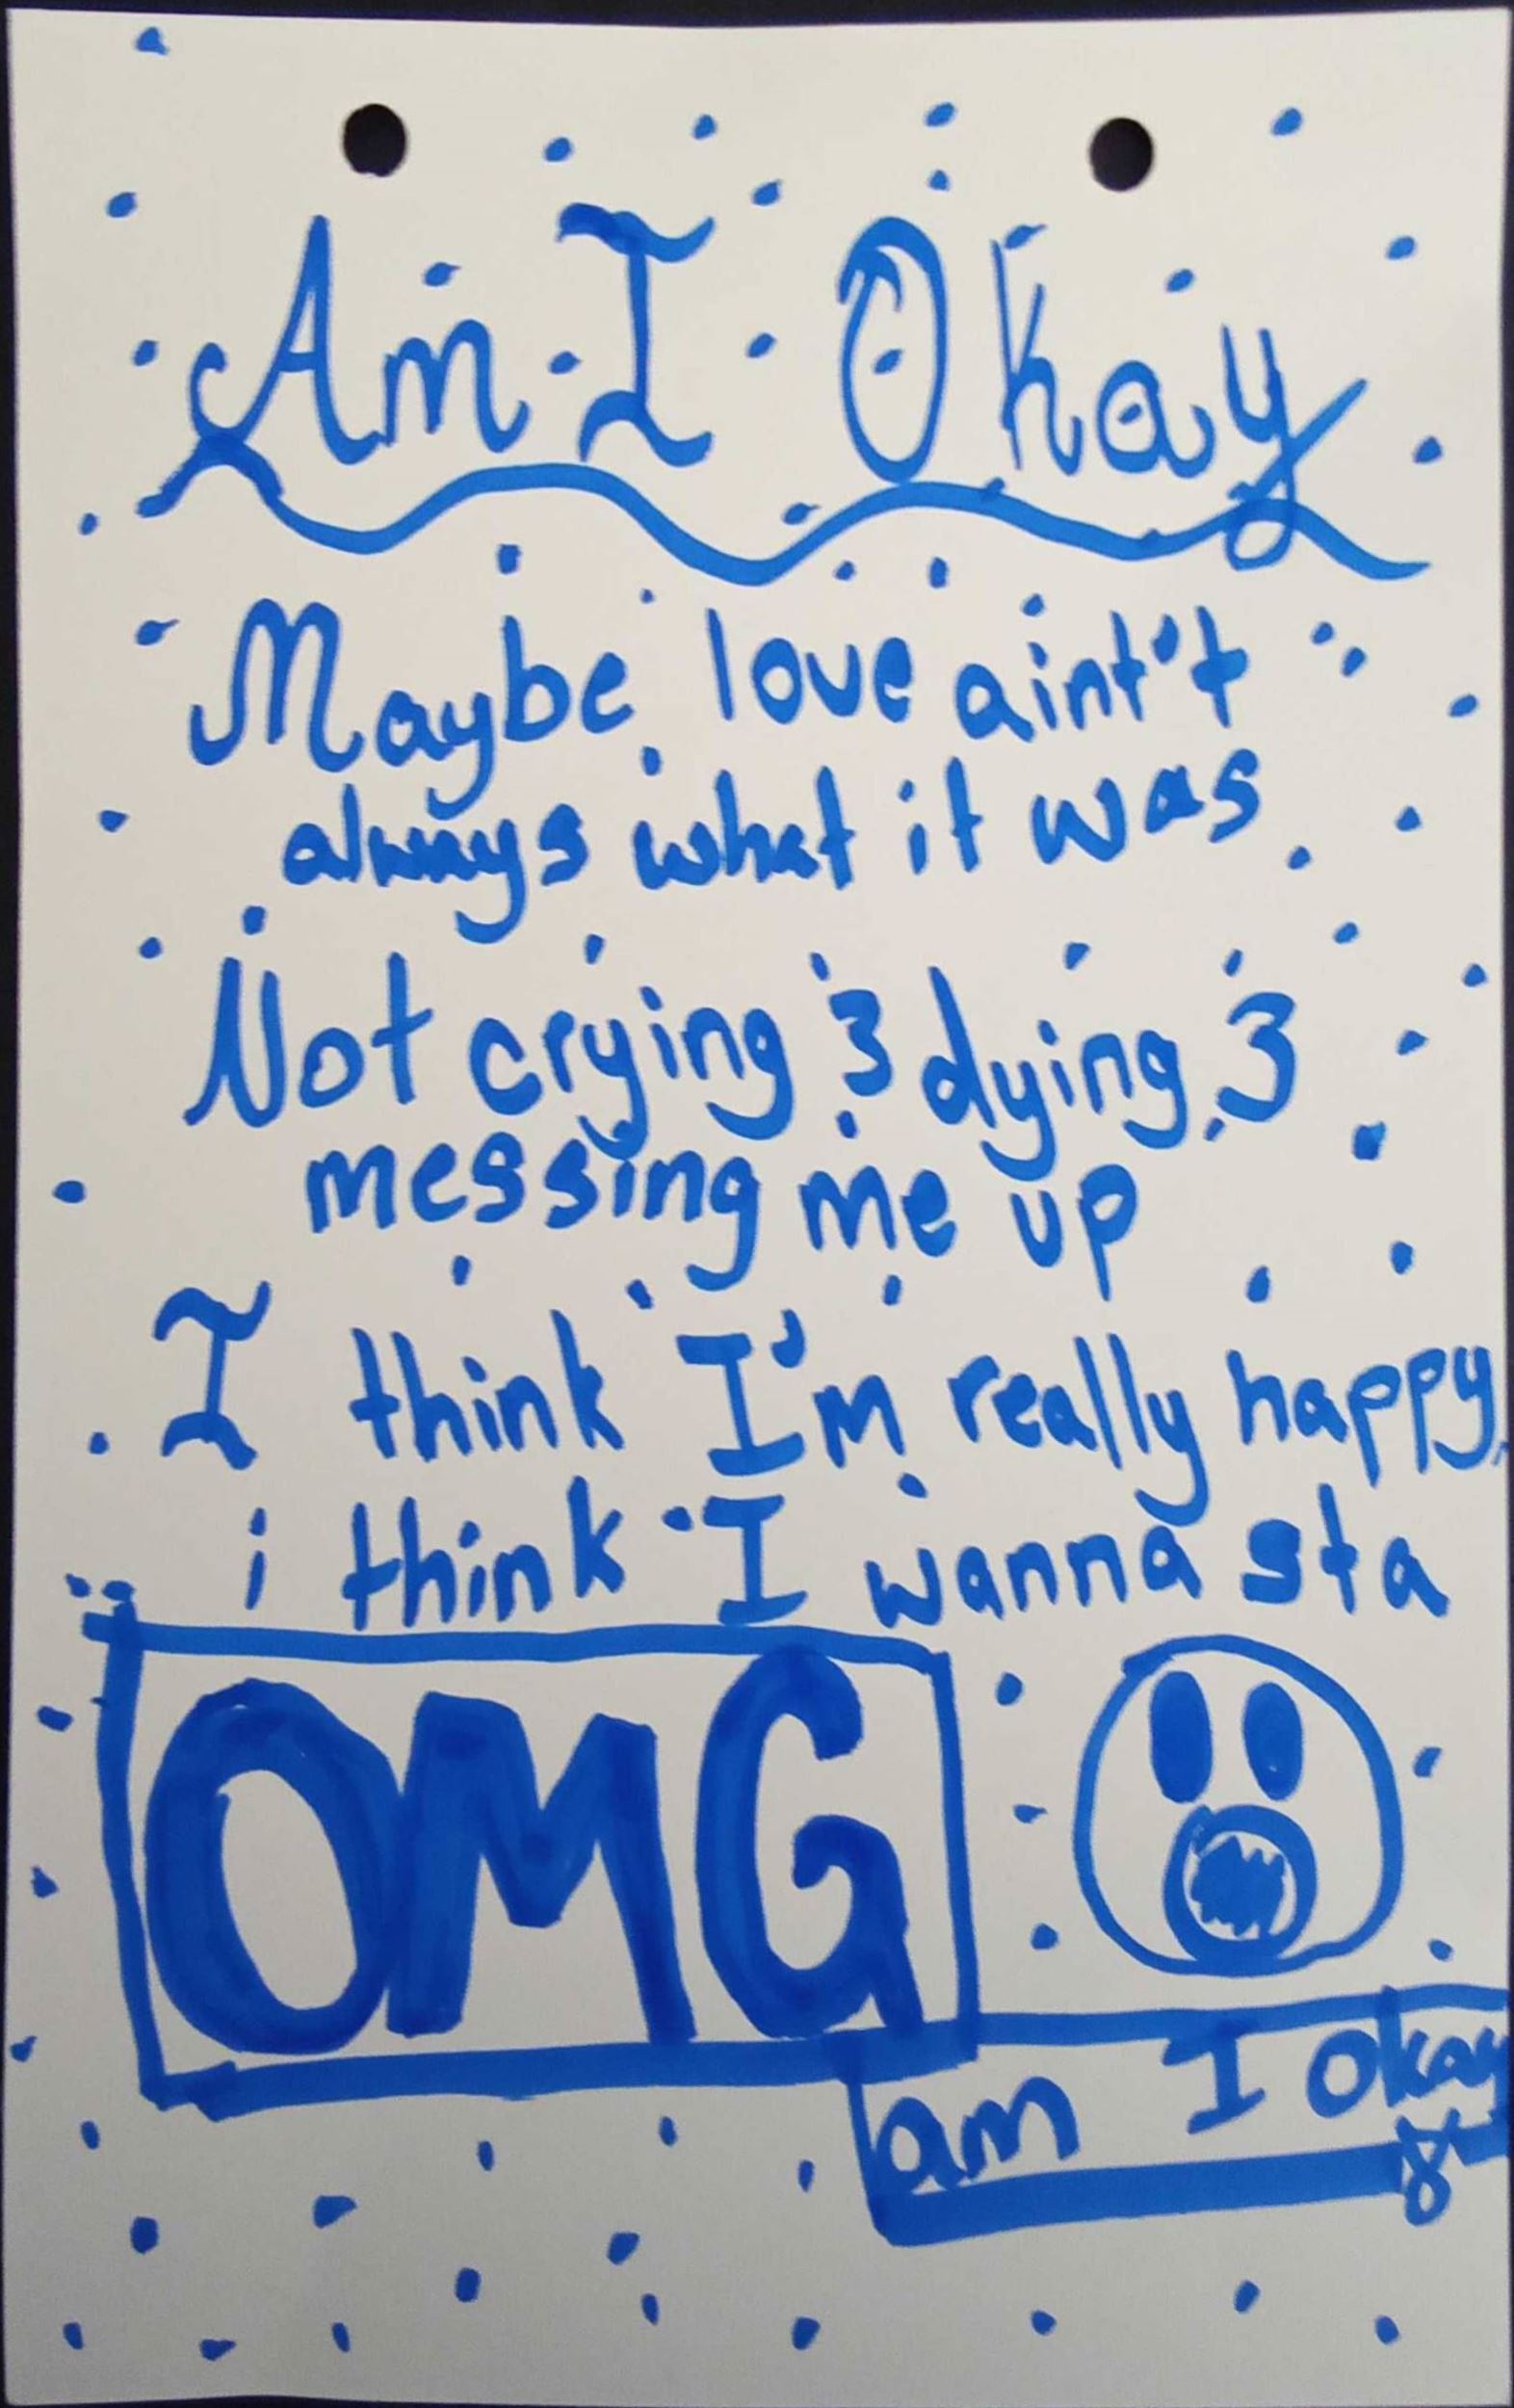 Am I Okay
Maybe love aint't
always what it was
Not crying & dying &
messing me up
I think I'm really happy,
i think I wanna sta
OMG
am I okay